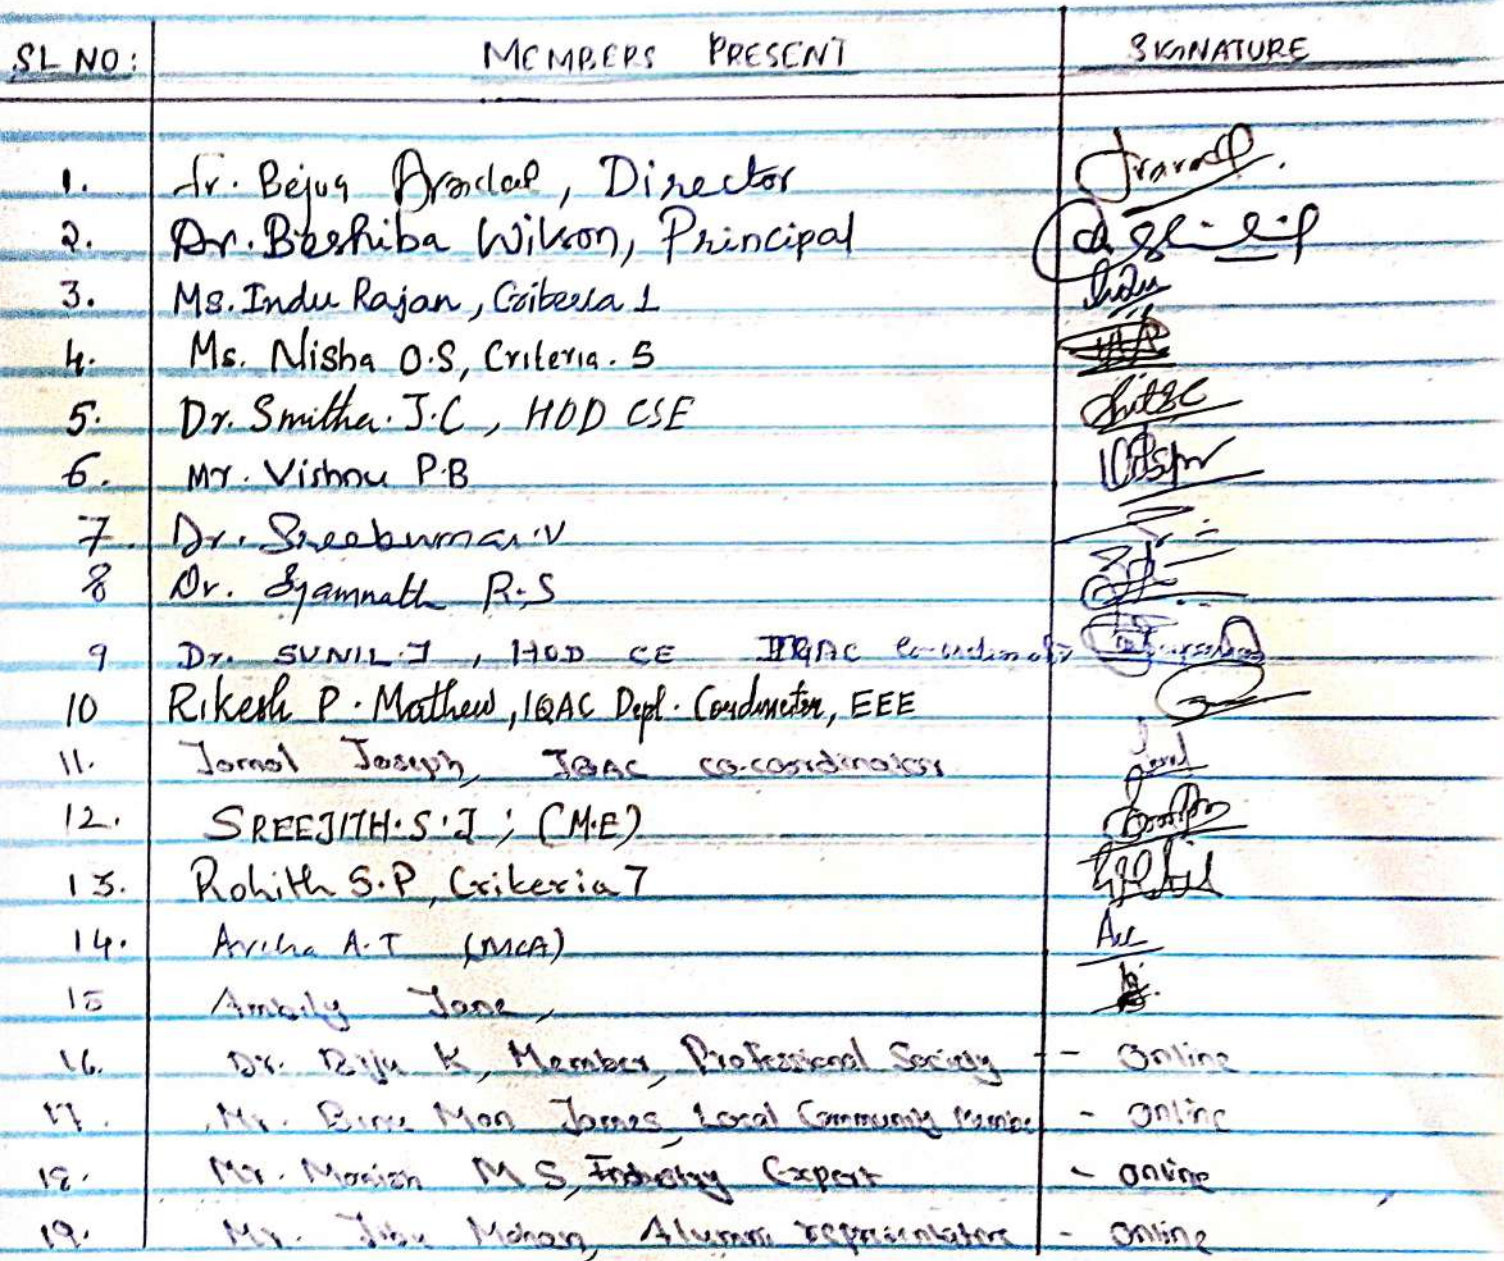 SL NO: MEMBERS PRESENT SIGNATURE
1. Fr. Bejoy Aradal, Director
2. Dr. Beshiba Wilson, Principal
3. Ms. Indu Rajan, Criteria 1
4. Ms. Nisha O.S, Criteria. 5
5. Dr. Smitha. J.C, HOD CSE
6. Mr. Vishnu P.B
7. Dr. Sreekumar.V
8 Dr. Syamnath R.S
9 Dr. SUNIL.J, HOD CE IQAC Co-ordinator
10 Rikesh P. Mathew, IQAC Dept. Coordinator, EEE
11. Jomol Joseph, IQAC co-coordinator
12. SREEJITH.S.J; (M.E)
13. Rohith S.P, Criteria 7
14. Archa A.T (MCA)
15 Ambily Jane,
16. Dr. Biju K, Member, Professional Society - - Online
17. Mr. Mon James, Local Community Member - Online
18. Mr. M S, Industry Expert - Online
19. Mr. Jibu Mohan, Alumni representative - Online